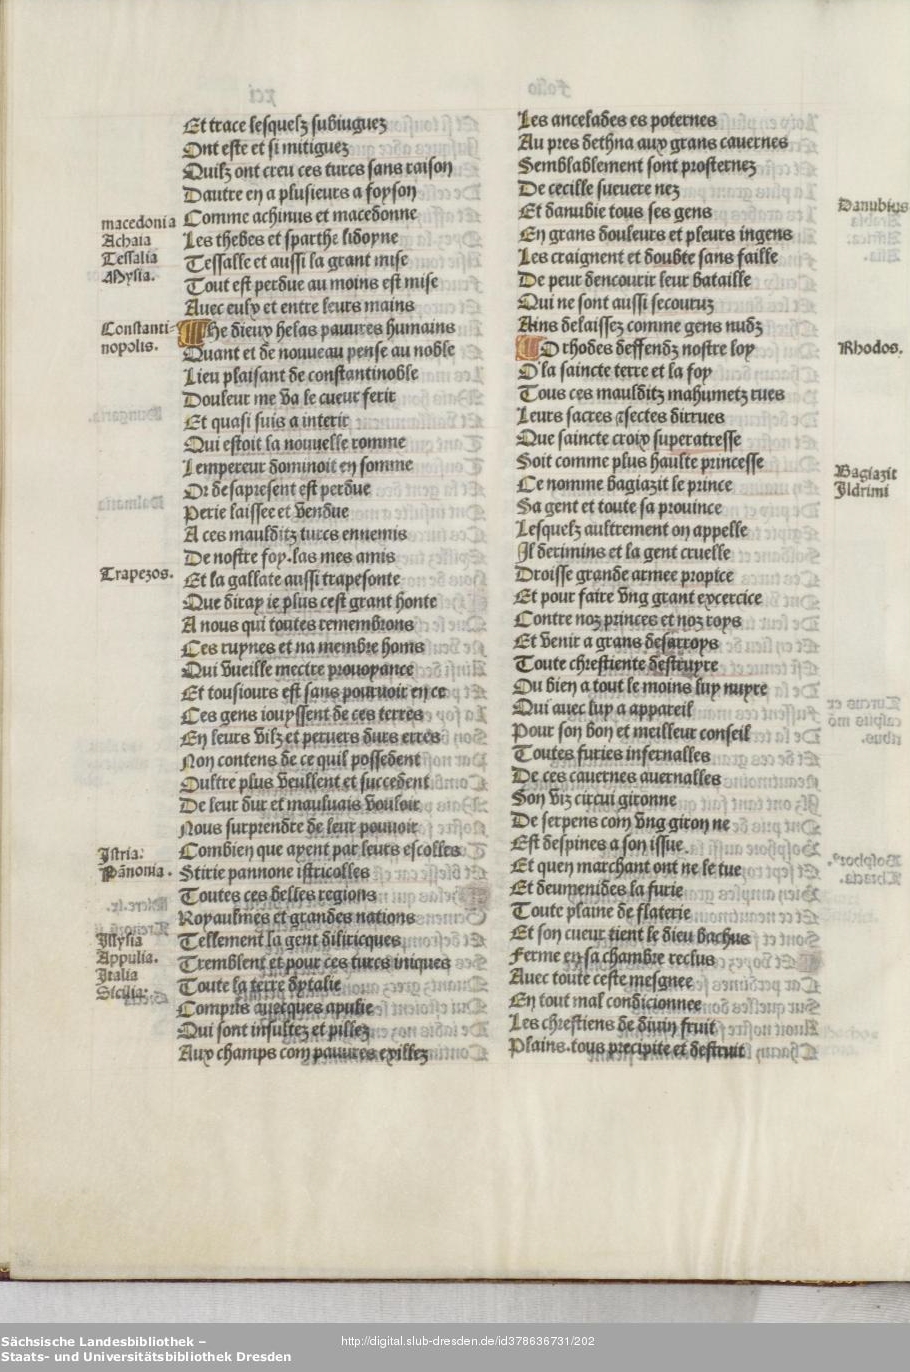 Et trace lesquelz subiuguez
Ont este et si mitiguez
Quilz ont creu ces turcs sans raison
Dautre en a plusieurs a foyson
macedonia
Comme achinus et macedonne
Achaia
Les thebes et sparthe lidoyne
Tessalia
Tessalle et aussi la grant mise
Mysia.
Tout est perdue au moins est mise
Avec eulx et entre leurs mains
Constanti-
nopolis.
He dieux helas pauures humains
Quant et de nouueau pense au noble
Lieu plaisant de constantinoble
Douleur me va le cueur ferir
Et quasi suis a interir
Qui estoit la nouuelle romme
Lempereur dominoit en somme
Or desapresent est perdue
Perie laissee et vendue
A ces maulditz turcs ennemis
De nostre foy.las mes amis
Trapezos.
Et la gallate aussi trapesonte
Que diray ie plus cest grant honte
A nous qui toutes remembrons
Ces ruynes et na membre homs
Qui vueille mectre prouoyance
Et tousiours est sans pouruoir en ce
Ces gens iouyssent de ces terres
En leurs vilz et peruers durs erres
Non contens de ce quil possedent
Oultre plus veullent et succedent
De leur dur et mauluais vouloir
Nous surprendre de leur pouuoir
Istria.
Combien que ayent par leurs escolles
Pānonia.
Stirie pannone istricolles
Toutes ces belles regions
Royaulmes et grandes nations
Illysia
Tellement la gent diliricques
Appulia.
Tremblent et pour ces turcs iniques
Italia
Toute la terre dytalie
Sicilia.
Compris auecques apulie
Qui sont insultez et pillez
Aux champs com pauures exillez
Les anceladес es poternes
Au pres dethna aux grans cauernes
Semblablement sont prosternez
De cecille sueuere nez
Danubius
Et danubie tous ses gens
En grans douleurs et pleurs ingens
Les craignent et doubte sans faille
De peur dencourir leur bataille
Qui ne sont aussi secouruz
Ains delaissez comme gens nudz
Rhodos.
O rhodes deffendz nostre loy
O la saincte terre et la foy
Tous ces maulditz mahumetz rues
Leurs sacres ⁊sectes dirrues
Que saincte croix superatresse
Soit comme plus haulte princesse
Bagiazit
Ildrimi
Ce nomme bagiazit le prince
Sa gent et toute sa prouince
Lesquelz aultrement on appelle
Il derimins et la gent cruelle
Droisse grande armee propice
Et pour faire vng grant excercice
Contre noz princes et noz roys
Et venir a grans desarroys
Toute chrestiente destruyre
Ou bien a tout le moins luy nuyre
Qui auec luy a appareil
Pour son bon et meilleur conseil
Toutes furies infernalles
De ces cauernes auernalles
Son viz circui gironne
De serpens com vng giron ne
Est despines a son issue.
Et quen marchant ont ne le tue
Et deumenides la furie
Toute plaine de flaterie
Et son cueur tient le dieu bachus
Ferme en sa chambre reclus
Avec toute ceste mesgnee
En tout mal condicionnee
Les chrestiens de diuin fruit
Plains.tous precipite et destruit
Sächsische Landesbibliothek –
Staats- und Universitätsbibliothek Dresden
http://digital.slub-dresden.de/id378636731/202